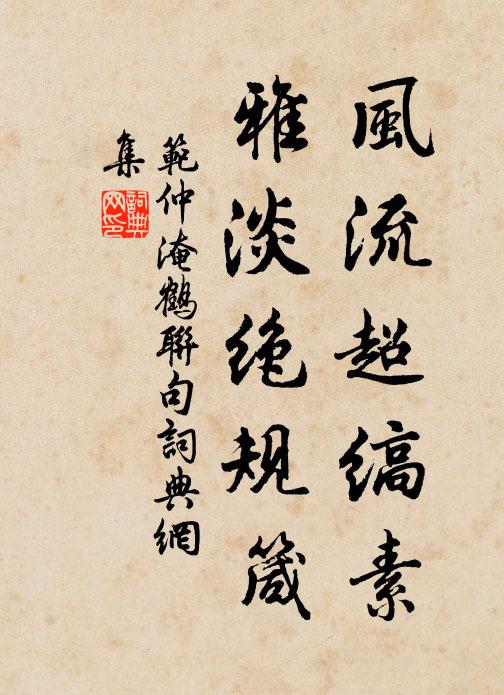 風流超縞素
雅淡絶規箴
範仲淹鶴聯句詞典網
集
詞典
网印